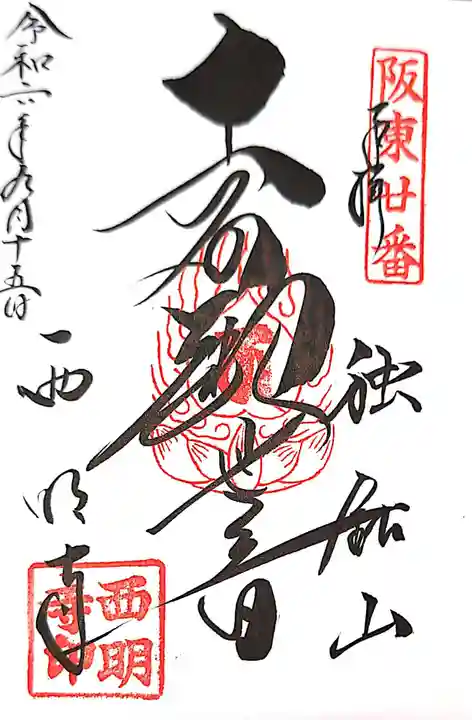 阪東廿番
奉拝
独鈷山
十一面観世音
西明寺
西明寺印
令和六年九月十五日